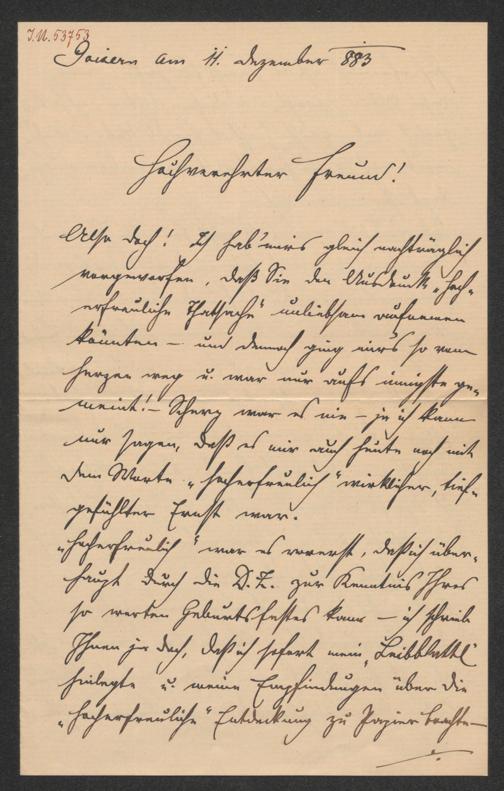 J.N. 53753
Goisern am 11. Dezember 883
Hochverehrter Freund!
Also doch! Ich hab' mirs gleich nachträglich
vorgeworfen, daß Sie den Ausdruck „hoch-
erfreuliche Thatsache" unliebsam aufnemen
könnten – und dennoch ging mir's so vom
Herzen weg u. war nur aufs innigste ge-
meint! – Scherz war es nie – ja ich kann
nur sagen, daß es mir auch heute noch mit
dem Worte „hocherfreulich" wirklicher, tief-
gefühlter Ernst war.
„Hocherfreulich" war es vorerst, daß ich über-
haupt durch die D.Z. zur Kenntnis Ihres
so werten Geburtsfestes kam – ich schrieb
Ihnen ja doch, daß ich sofort mein „Leibblattl"
hinlegte u. meine Empfindungen über die
„hocherfreuliche" Entdeckung zu Papier brachte –